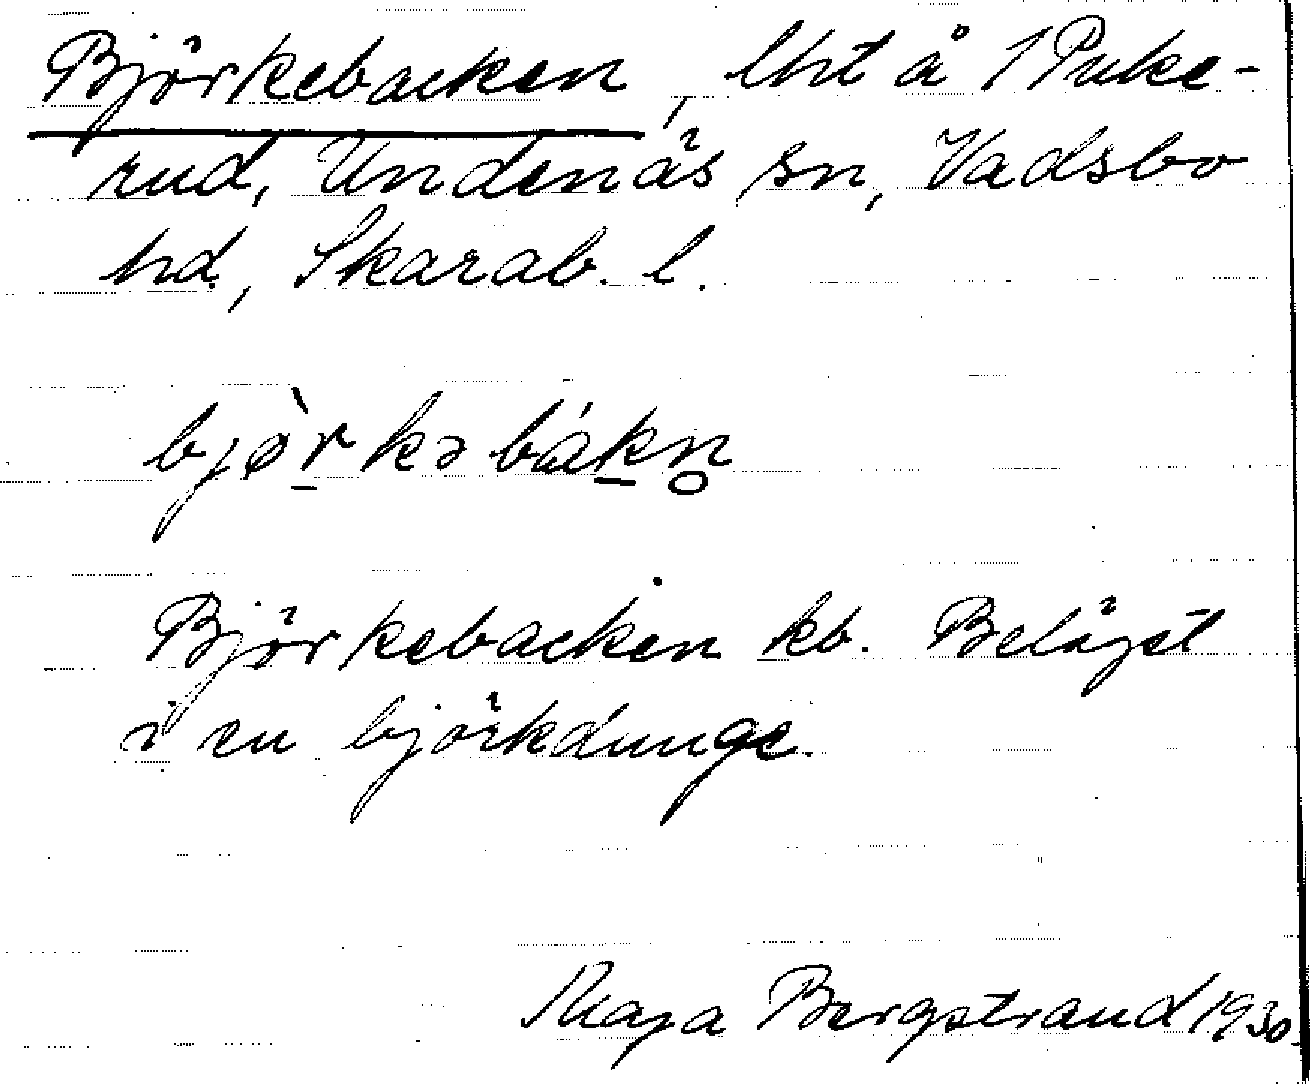 Björkebacken, lht å 1 Puke-
rud, Undenäs sn, Vadsbo
hd, Skarab. l.
bjø̀r̲kəbák̲n̥
Björkebacken kb. Beläget
i en björkdunge.
Maja Bergstrand 1930.